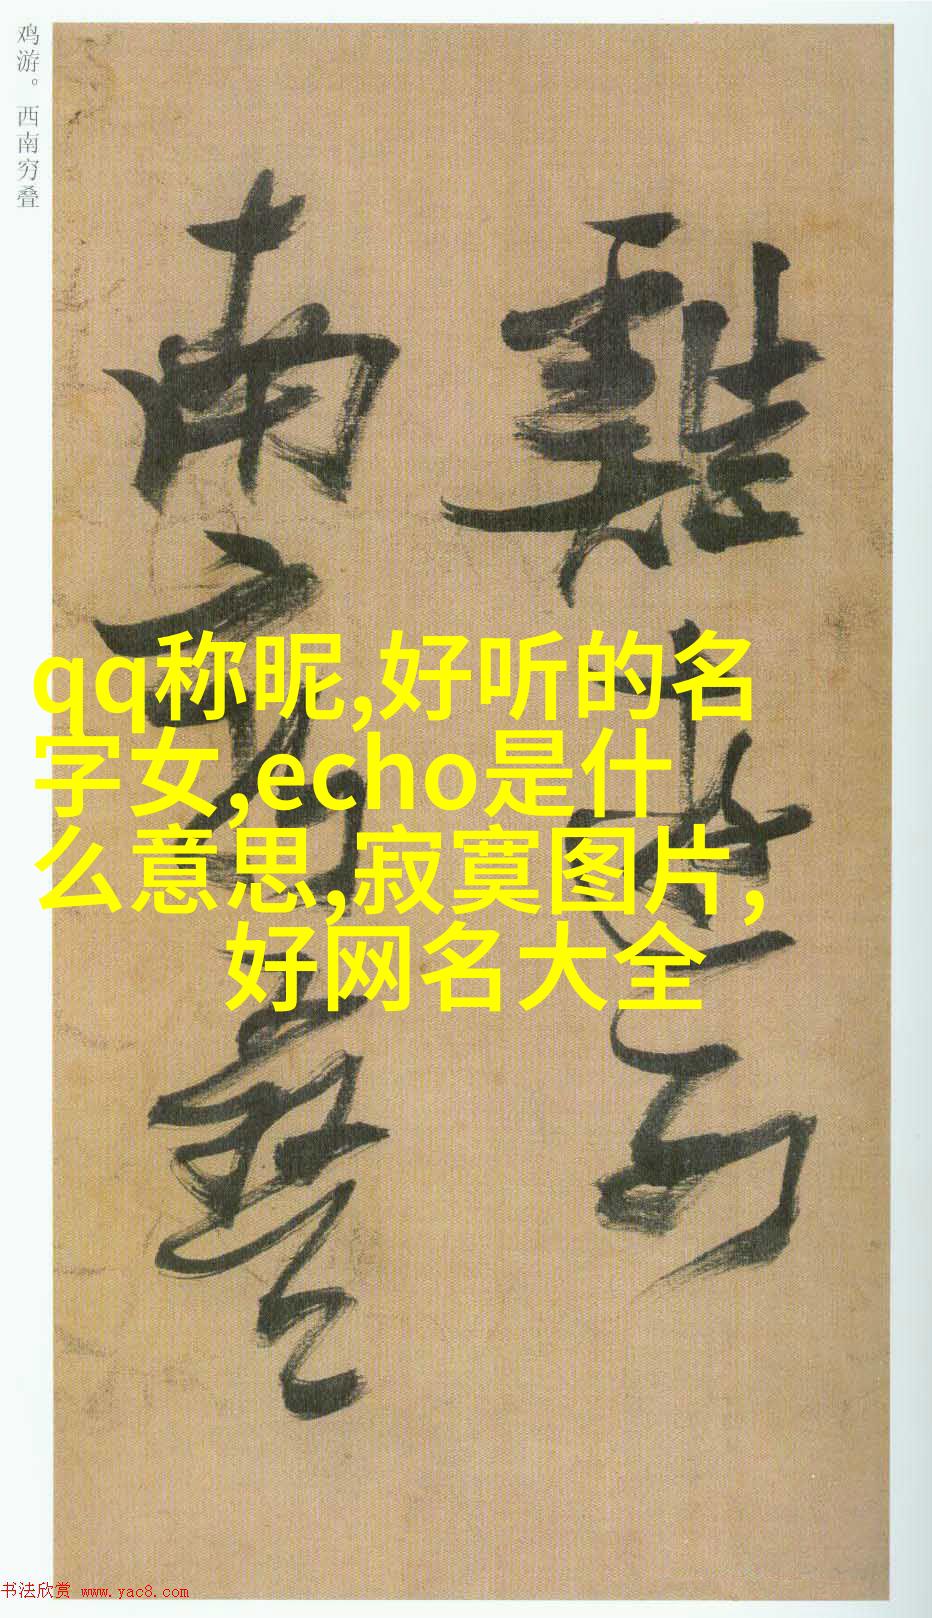 鸡游。西南穷叠
雞游西
南窮疊
qq称昵,好听的名
字女,echo是什
么意思,寂寞图片,
好网名大全
书法欣赏 www.yac8.com